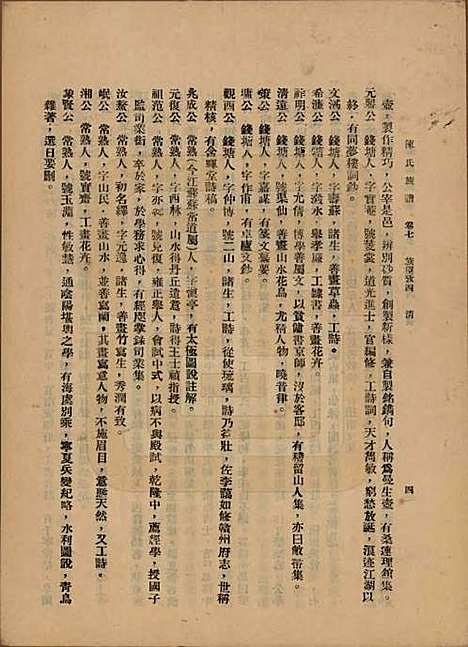 陳氏族譜　卷七　族望攷四　清　四
壺，製作精巧，公宰是邑，辨別砂質，創製新樣，兼自製銘鐫句，人稱爲曼生壺，有桑連理館集。
元　公　錢塘人，字實　，號　裳，道光進士，官編修，工詩詞，天才雋敏，窮愁放誕，浪迹江湖以
終，有同夢樓詞鈔。
文　公　錢塘人，字壽蘇，諸生，善畫草蟲，工詩。
希濂公　錢塘人，字　水，舉孝廉，工隸書，善畫花卉。
詳明公　錢塘人，字尤倩，博學善屬文，以貧傭書京師，沒於客邸，有稽留山人集，亦曰敝帚集。
清遠公　錢塘人，號渠仙，善畫山水花鳥，尤精人物，曉音律。
　公　錢塘人，字嘉謀，有篆文纂要。
　公　錢塘人，字作甫，有旱廬文鈔。
觀酉公　錢塘人，字仲博，號二山，諸生，工詩，從使琉璃，詩乃益壯，佐李藹如修贛州府志，世稱
精核，有含暉堂詩稿。
兆成公　常熟人（今江蘇蘇常道屬）人，字　亭，有太極圖說註解。
元復公　常熟人，字西林，山水得丹丘遺意，詩得王士禎指授。
祖范公　常熟人，字亦　，號見復，雍正舉人，會試中式，以病不與殿試，乾隆中，薦經學，授國子
監司業銜，卒於家，於學務求心得，有經咫掌錄司業集。
汝　公　常熟人，初名鐸，字元逸，諸生，善畫竹寫生，秀潤有致。
岷公　常熟人，字山民，善畫山水，並善寫蘭，其畫寫意人物，不施眉目，意態天然，又工詩。
湘公　常熟人，號寶齋，工畫花卉。
象賢公　常熟人，號玉淵，性敏慧，通陰陽堪輿之學，有海虞別乘，寧夏兵變紀略，水利圖說，青烏
雜著，選日要刪。